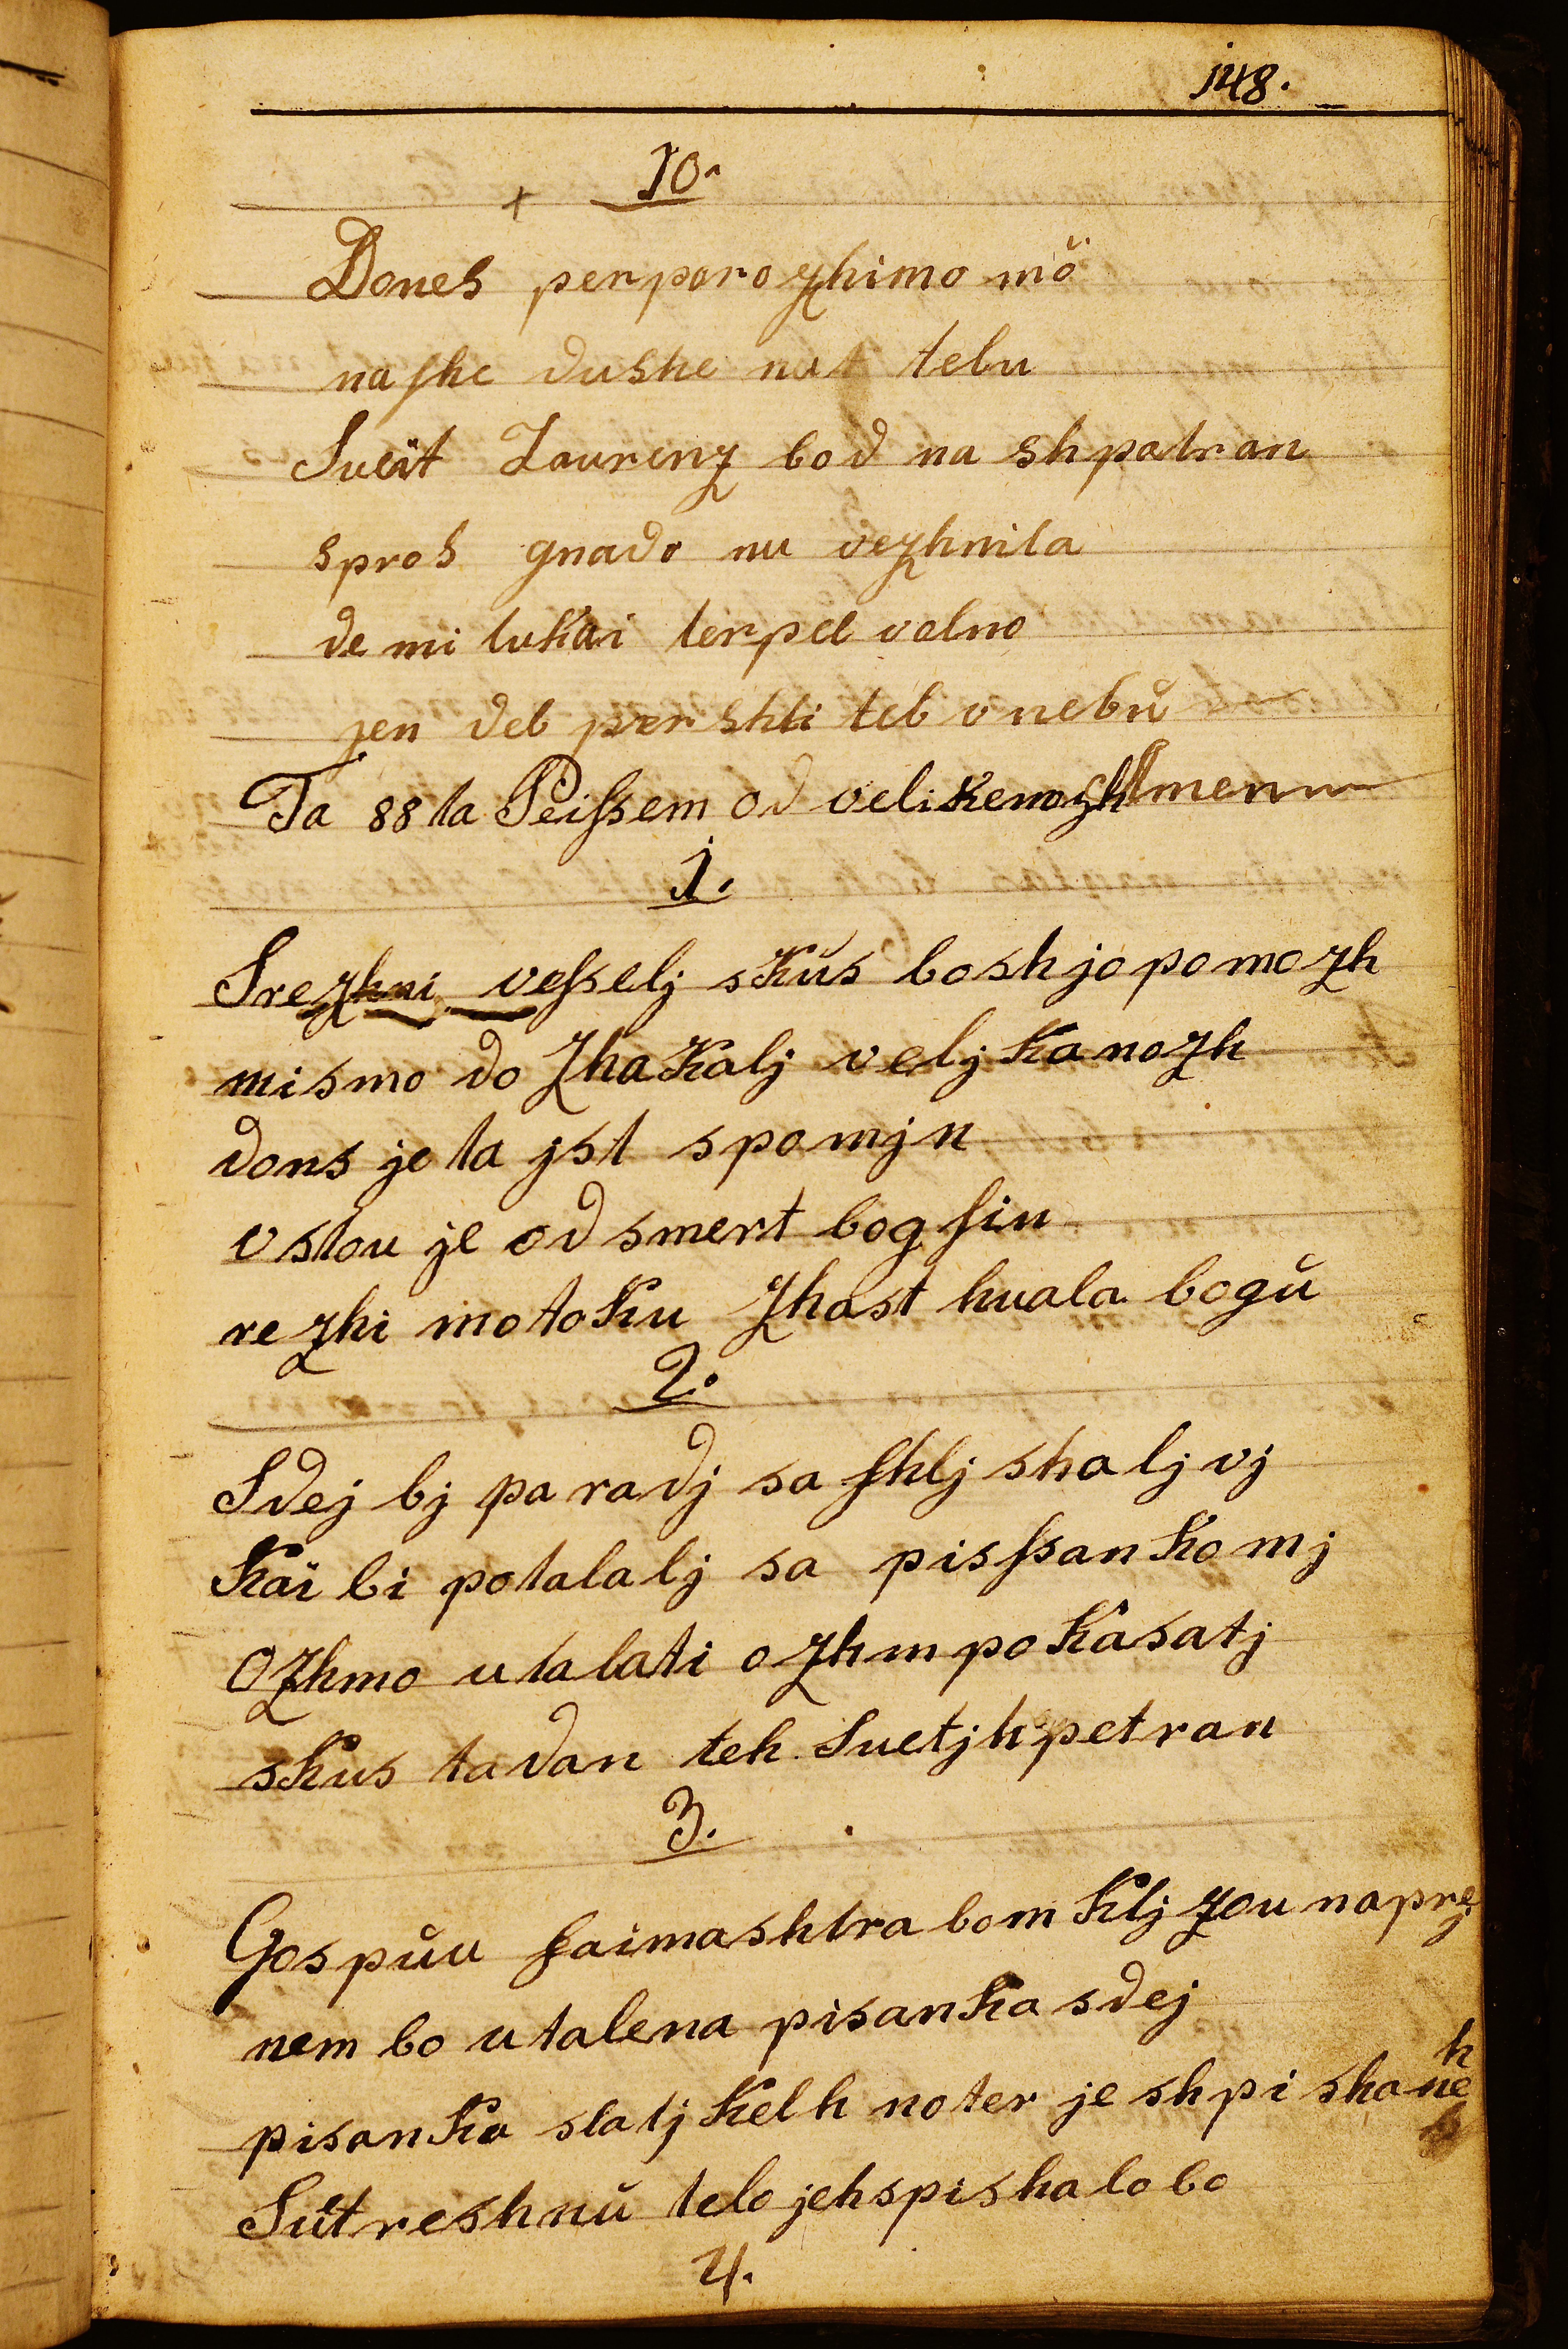 148.
10.
Dones perporozhimo mö
nashe dushe nat tebu
Sueit Laurenz bod na shpatran
spros gnado nu vezhnita
de mi tukai terpel volno
jen deb pershli teb v nebŭ
Ta 88ta Peissem od velikenozhi
1.
Srezhni vesselj skŭs boshjo pomozh
mismo do zhakalj veljkanozh
dons je ta jst spomjn
vstou je od smert bog sin
rezhi moto ku zhast huala bogŭ
2.
Sdej bj paradj sashlj shalj vj
Kai bi potalalj sa pissankomj
ozhmo utalati ozhm pokasatj
skus ta dan teh Suetjh petran
3.
Gospŭu faimashtra bom kljzou naprej
nem bo utalena pisanka sdej
pisanka slatj kelh noter je shpishaneh
Sŭtreshnŭ telo jeh spishalo bo
4.